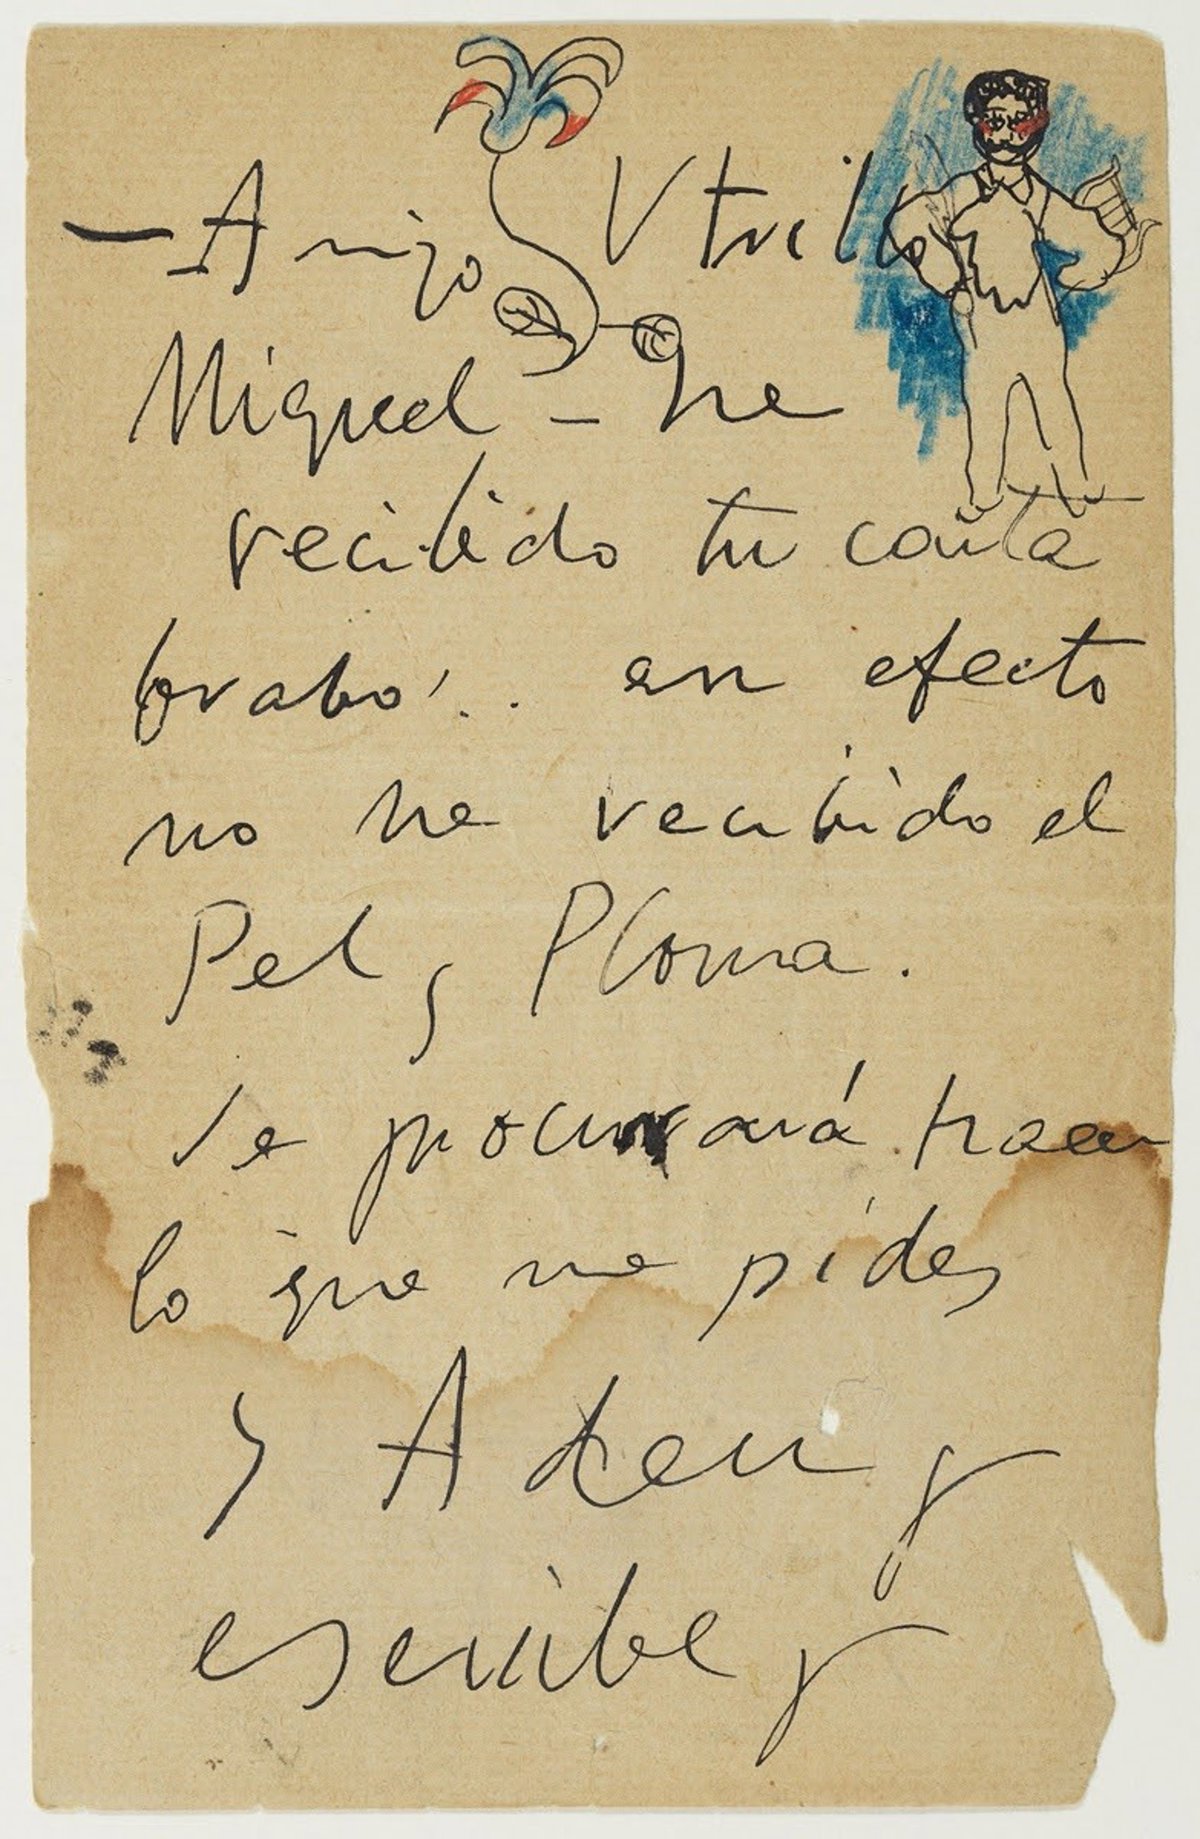 – Amigo Utrillo
Miguel – he
recibido tu carta
brabo!.. en efecto
no he recibido el
Pel y Ploma.
Se procurará traer
lo que me pides
y Adeu y
escribe y